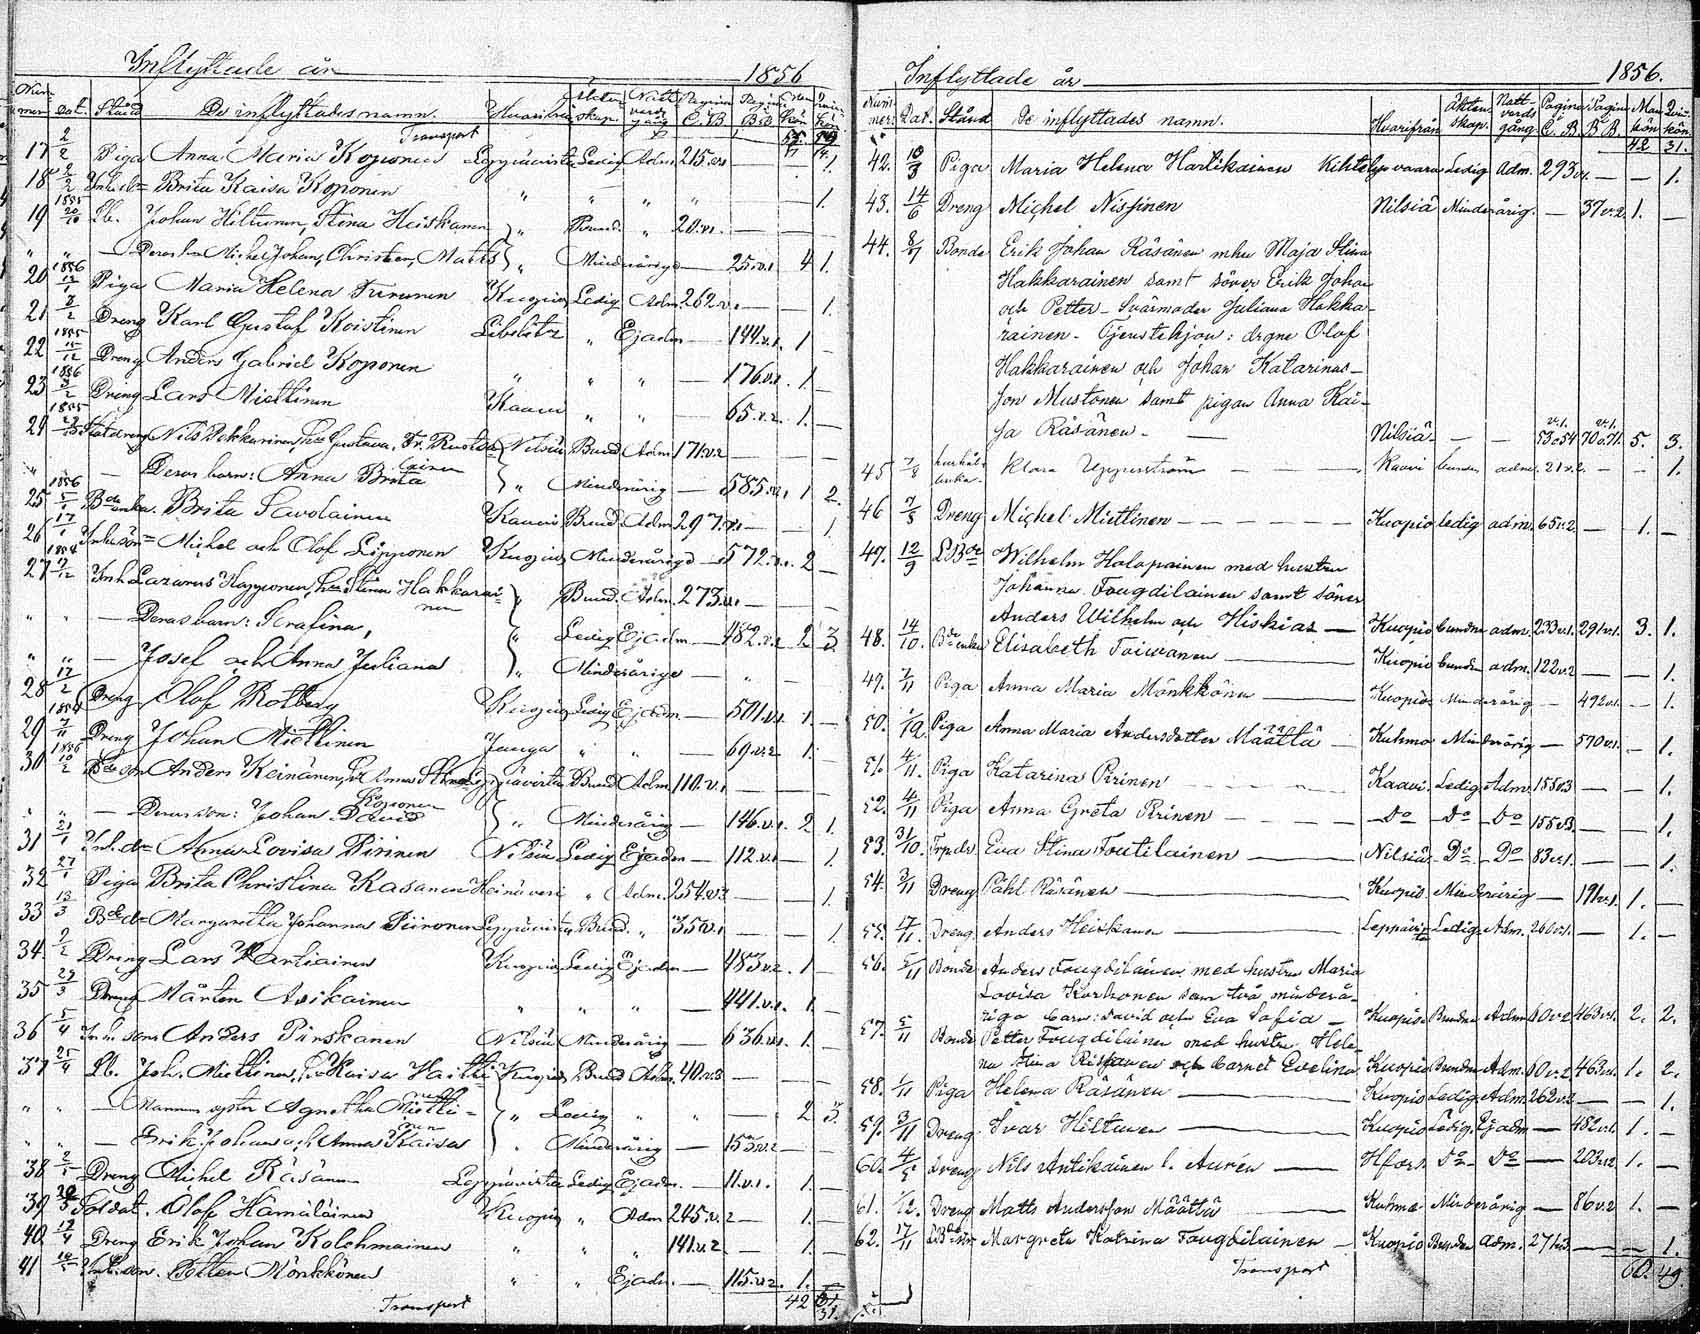 Inflyttade år 1856
Nummer Dat. Stånd De inflyttades namn. Hvarifrån Äktenskap. Nattvardsgång Pagina C.B. Pagina B.B. Mankön Qvinkön
Transport
17 2/2 Piga Anna Maria Koponen Leppävirta Ledig Adm. 215 — — 1.
18 2/2 Inh. dr Brita Kaisa Koponen " " " " — — 1.
1855
19 20/10 Lb. Johan Hiltunen, Stina Heiskanen " " 20.v.1 — — —
" " — Deras barn Michel Johan, Christer, Matts " Minderårige — 25.v.1 4 1.
1856
20 12/1 Piga Maria Helena Turunen Kuopio Ledig Adm. 262.v. — — 1.
21 3/2 Dreng Karl Gustaf Koistinen Libelitz " Ej adm — 144.v.1. 1 —
1855
22 15/12 Dreng Anders Gabriel Koponen " " " — 176.v.1. 1 —
1856
23 3/2 Dreng Lars Miettinen Kaavi " " — 65.v.2. 1. —
1855
Statdreng Nils Pekkarinen, Gustava Nilsiä Bund. Adm. 171.v.2
" — Deras barn: Anna Brita " Minderårig — 585 1 2.
1856
25 5/1 Bde enka. Brita Savolainen Kaavi Bund. Adm. 297 — 1
26 17/1 Inh. sön= Michel och Olof Lipponen Kuopio Minderårige — 572 2 —
1854
27 7/12 Inh. Lazarus Happonen, hu Stina Hakkarainen " Bund. Adm. 273 — — —
" " — Deras barn: Serafina, " Ledig Ej adm — 482.v.2 2 3.
" " — Josef och Anna Juliana " Minderårige — "
28 17/2 Dreng Olof Rotberg Kuopio Ledig Ej adm. — 501.v.1. 1. —
1854
29 7/11 Dreng Johan Miettinen Jauga " " — 69.v.2 1. —
1856
30 10/2 Bde son Anders Keinänen, hu Anna Stina Koponen Leppävirta Bund. Adm. 110.v.1 — —
" " — Deras son: Johan David " Minderårig — 146.v.1. 2 1.
31 21/1 Inh. dr Anna Lovisa Pirinen Nilsiä Ledig Ej adm — 112.v.1 — 1.
32 27/1 Piga Brita Christina Kasanen Heinävesi " Adm. 254.v.3 — — 1.
33 13/3 Bde dr Margaretha Johanna Piironen Leppävirta Bund. " 35.v.1 — — 1
34. 2/2 Dreng Lars Partiainen Kuopio Ledig Ej adm — 483.v.2. 1 —
35 29/3 Dreng Mårten Asikainen " " " — 441.v.1. 1. —
36 5/4 Inh. sons Anders Pirskanen Nilsiä Minderårig — 636.v.1. 1. —
37 25/4 Lb. Joh. Miettinen, hu Kaisa Haitti Kuopio Bund Adm. 40.v.3 — — —
" " — Mannens syster Agnetha Miettinen " Ledig " " — 2 3.
" " — Erik Johan och Anna Kaisa " Minderårig — 155.v.2 — —
38 2/5 Dreng Michel Räsänen Leppävirta Ledig Ej adm. — 11.v.1. 1. —
39 Soldat. Olof Hämäläinen Kuopio " Adm 245.v.2 — 1. —
40 12/4 Dreng Erik Johan Kolehmainen " " " 141.v.2 — 1. —
41 Inh. son. Petter Mönkkönen " " Ej adm. — 115.v.2. 1. —
Transport 42 31.
Inflyttade år 1856.
Nummer. Dat. Stånd De inflyttades namn. Hvarifrån Äktenskap. Nattvardsgång Pagina C.B. Pagina B.B. Mankön Qvinkön.
42 31.
42. 10/3 Piga Maria Helena Hartikainen Kihtelysvaara Ledig Adm. 293 — — 1.
43. 14/6 Dreng Michel Nissinen Nilsiä Minderårig. — 37.v.2. 1. —
44. 8/7 Bonde Erik Johan Räsänen m hu Maja Stina
Hakkarainen samt söner Erik Johan
och Petter. Svärmoder Juliana Hakka-
rainen. Tjenstehjon: drgne Olof
Hakkarainen och Johan Katarinas-
son Mustonen samt pigan Anna Kai-
sa Räsänen. — Nilsiä — — 53 o 54 70 o 71. 5. 3.
45 7/8 hushåll. enka. Klara Uppström — — Kaavi bunden adm. 21.v.2. — — 1.
46 7/8 Dreng Michel Miettinen — — Kuopio ledig adm. 65.v.2. — 1. —
47. 12/9 LBde Wilhelm Holopainen med hustru
Johanna Fougdilainen samt söner
Anders Wilhelm och Hiskias — Kuopio bundna adm. 233.v.1. 291.v.1. 3. 1.
48. 14/10. Bde enka Elisabeth Toiwanen — Kuopio bunden adm. 122.v.2 — — 1.
49. 7/11 Piga Anna Maria Mönkkönen — Kuopio Minderårig — 492.v.1. — 1.
50. Piga Anna Maria Andersdotter Määttä — Kuhmo Minderårig — 570.v.1. — 1.
51. 4/11. Piga Katarina Pirinen — Kaavi. Ledig Adm. 155.v.3 — — 1.
52. 4/11 Piga Anna Greta Pirinen — Do Do Do 155.v.3. — — 1.
53. 31/10. Trpdr. Eva Stina Toutilainen — Nilsiä Do Do 83.v.1. — — 1.
54. 3/11 Dreng Påhl Räsänen — Kuopio Minderårig — 191.v.1. 1. —
55. 17/11. Dreng Anders Heiskanen — Leppävirta Ledig. Adm. 260.v.1. — 1. —
56. 5/11 Bonde Anders Fougdilainen med hustru Maria
Lovisa Korhonen samt två minderå-
riga barn: David och Eva Sofia — Kuopio Bundna Adm. 60.v.2 463.v.1. 2. 2.
57. 5/11 Bonde Petter Fougdilainen med hustru Hele-
na Stina Rissanen och barnet Evelina Kuopio Bundna Adm. 60.v.2 463.v.1. 1. 2.
58. 1/11 Piga Helena Räsänen — Kuopio Ledig Adm. 262.v.2 — — 1.
59. 3/11 Dreng Ivar Hiltunen — Kuopio Ledig. Ej adm — 482.v.1. 1. —
60. 4/5 Dreng Nils Antikainen l. Aurén — Hfors Do Do — 203.v.2 1. —
61. 1/12. Dreng Matts Andersson Määttä — Kuhmo Minderårig — 86.v.2 1. —
62. 17/11 Margreta Katrina Fougdilainen — Kuopio Bunden adm. 271.v.3. — — 1.
Transport 60. 49.